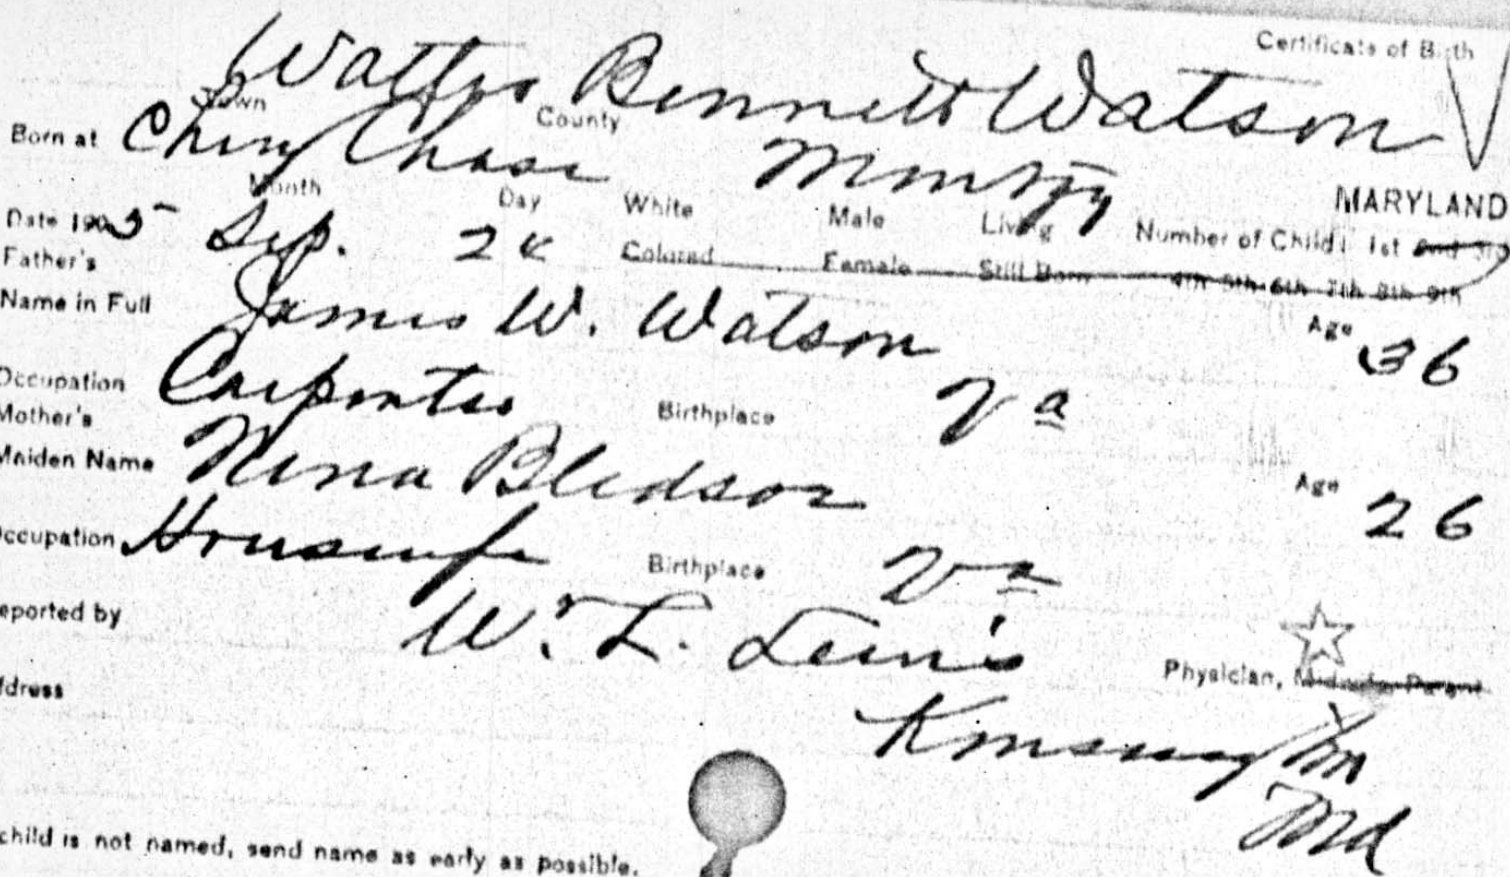 Certificate of Birth
Walter Bennett Watson
Town County
Born at Chevy Chase Montgy MARYLAND
Month Day White Male Living Number of Child: 1st 2nd 3rd
Date 1905 Sep. 24 Colored Female Still Born 4th 5th 6th 7th 8th 9th
Father's
Name in Full James W. Watson Age 36
Occupation Carpenter Birthplace Va
Mother's
Maiden Name Nina Bledsoe Age 26
Occupation Housewife Birthplace Va
eported by W. L. Lewis Physician, Midwife, Parent
ddress Kensington
Md
child is not named, send name as early as possible.